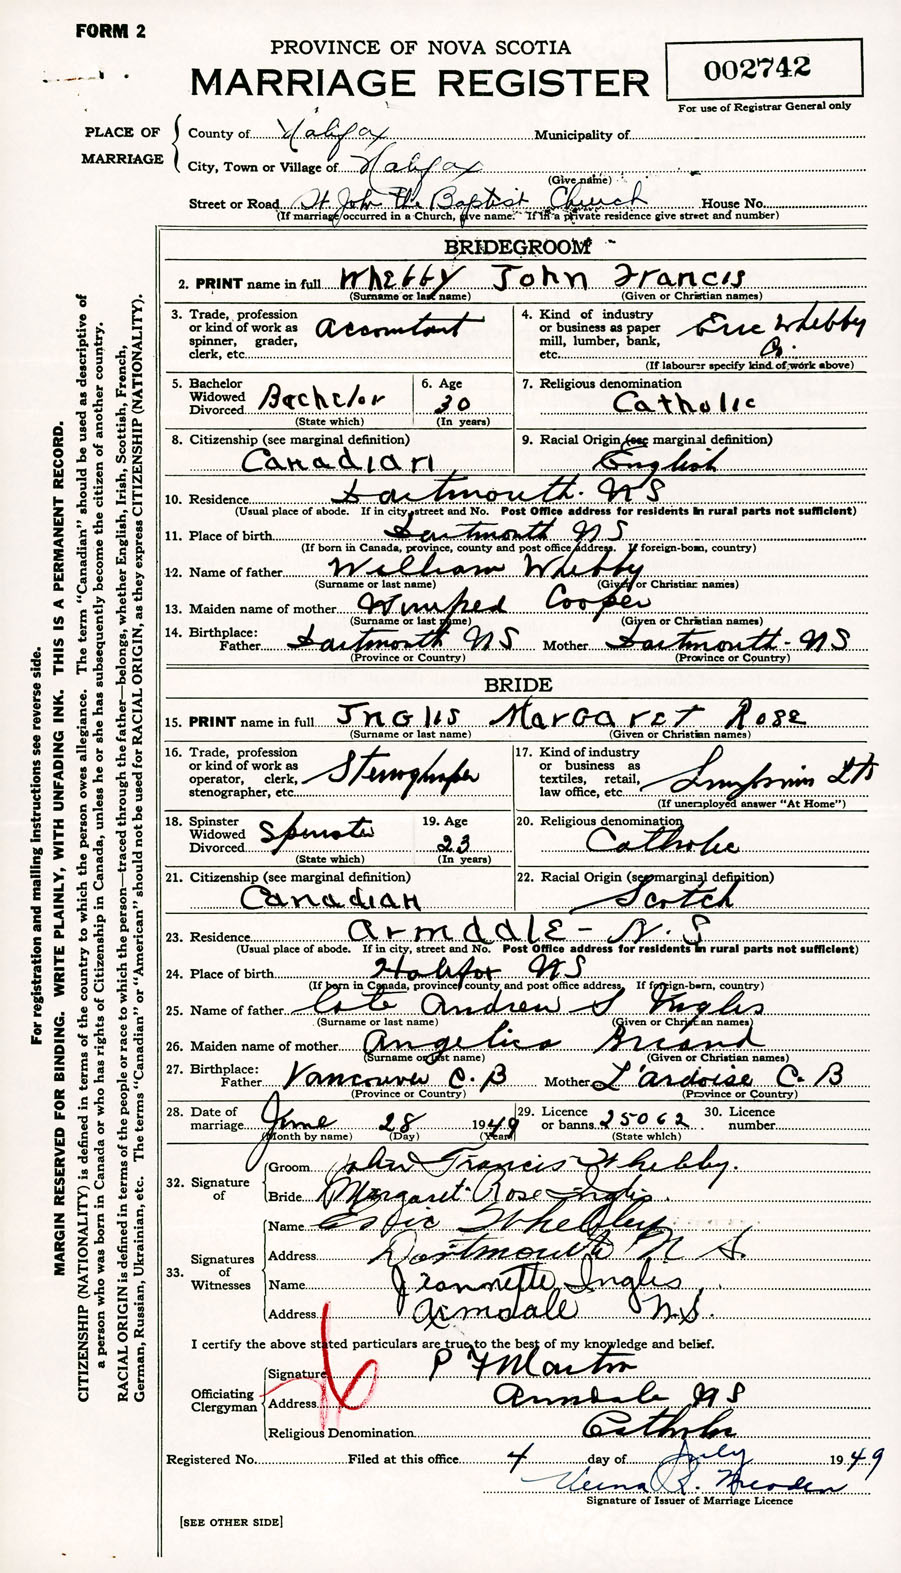 FORM 2
PROVINCE OF NOVA SCOTIA
MARRIAGE REGISTER
002742
For use of Registrar General only
PLACE OF MARRIAGE
County of Halifax Municipality of
City, Town or Village of Halifax
(Give name)
Street or Road St John The Baptist Church House No.
(If marriage occurred in a Church, give name. If in a private residence give street and number)
BRIDEGROOM
2. PRINT name in full Whebby John Francis
(Surname or last name) (Given or Christian names)
3. Trade, profession or kind of work as spinner, grader, clerk, etc. Accountant
4. Kind of industry or business as paper mill, lumber, bank, etc. Eric Whebby Co.
(If labourer specify kind of work above)
5. Bachelor Widowed Divorced Bachelor
(State which)
6. Age 30
(In years)
7. Religious denomination Catholic
8. Citizenship (see marginal definition) Canadian
9. Racial Origin (see marginal definition) English
10. Residence Dartmouth. NS
(Usual place of abode. If in city, street and No. Post Office address for residents in rural parts not sufficient)
11. Place of birth Dartmouth NS
(If born in Canada, province, county and post office address. If foreign-born, country)
12. Name of father William Whebby
(Surname or last name) (Given or Christian names)
13. Maiden name of mother Winifred Cooper
(Surname or last name) (Given or Christian names)
14. Birthplace: Father Dartmouth NS Mother Dartmouth - NS
(Province or Country) (Province or Country)
BRIDE
15. PRINT name in full Inglis Margaret Rose
(Surname or last name) (Given or Christian names)
16. Trade, profession or kind of work as operator, clerk, stenographer, etc. Stenographer
17. Kind of industry or business as textiles, retail, law office, etc. Ltd
(If unemployed answer "At Home")
18. Spinster Widowed Divorced Spinster
(State which)
19. Age 23
(In years)
20. Religious denomination Catholic
21. Citizenship (see marginal definition) Canadian
22. Racial Origin (see marginal definition) Scotch
23. Residence Armddle - N.S
(Usual place of abode. If in city, street and No. Post Office address for residents in rural parts not sufficient)
24. Place of birth Halifax NS
(If born in Canada, province, county and post office address. If foreign-born, country)
25. Name of father late Andrew S Inglis
(Surname or last name) (Given or Christian names)
26. Maiden name of mother Angelica Briand
(Surname or last name) (Given or Christian names)
27. Birthplace: Father Vancouver C. B Mother L'ardoise C. B
(Province or Country) (Province or Country)
28. Date of marriage June 28 1949
(Month by name) (Day) (Year)
29. Licence or banns 25062
(State which)
30. Licence number
32. Signature of
Groom John Francis Whebby.
Bride Margaret Rose Inglis.
33. Signatures of Witnesses
Name Whebby
Address Dartmouth N S.
Name Jeannette Inglis
Address Armdale N.S.
I certify the above stated particulars are true to the best of my knowledge and belief.
Officiating Clergyman
Signature P F Martin
Address Armdale NS
Religious Denomination Catholic
Registered No. Filed at this office 4 day of July 1949
Signature of Issuer of Marriage Licence
[SEE OTHER SIDE]
For registration and mailing instructions see reverse side.
MARGIN RESERVED FOR BINDING. WRITE PLAINLY, WITH UNFADING INK. THIS IS A PERMANENT RECORD.
CITIZENSHIP (NATIONALITY) is defined in terms of the country to which the person owes allegiance. The term "Canadian" should be used as descriptive of
a person who was born in Canada or who has rights of Citizenship in Canada, unless he or she has subsequently become the citizen of another country.
RACIAL ORIGIN is defined in terms of the people or race to which the person—traced through the father—belongs, whether English, Irish, Scottish, French,
German, Russian, Ukrainian, etc. The terms "Canadian" or "American" should not be used for RACIAL ORIGIN, as they express CITIZENSHIP (NATIONALITY).